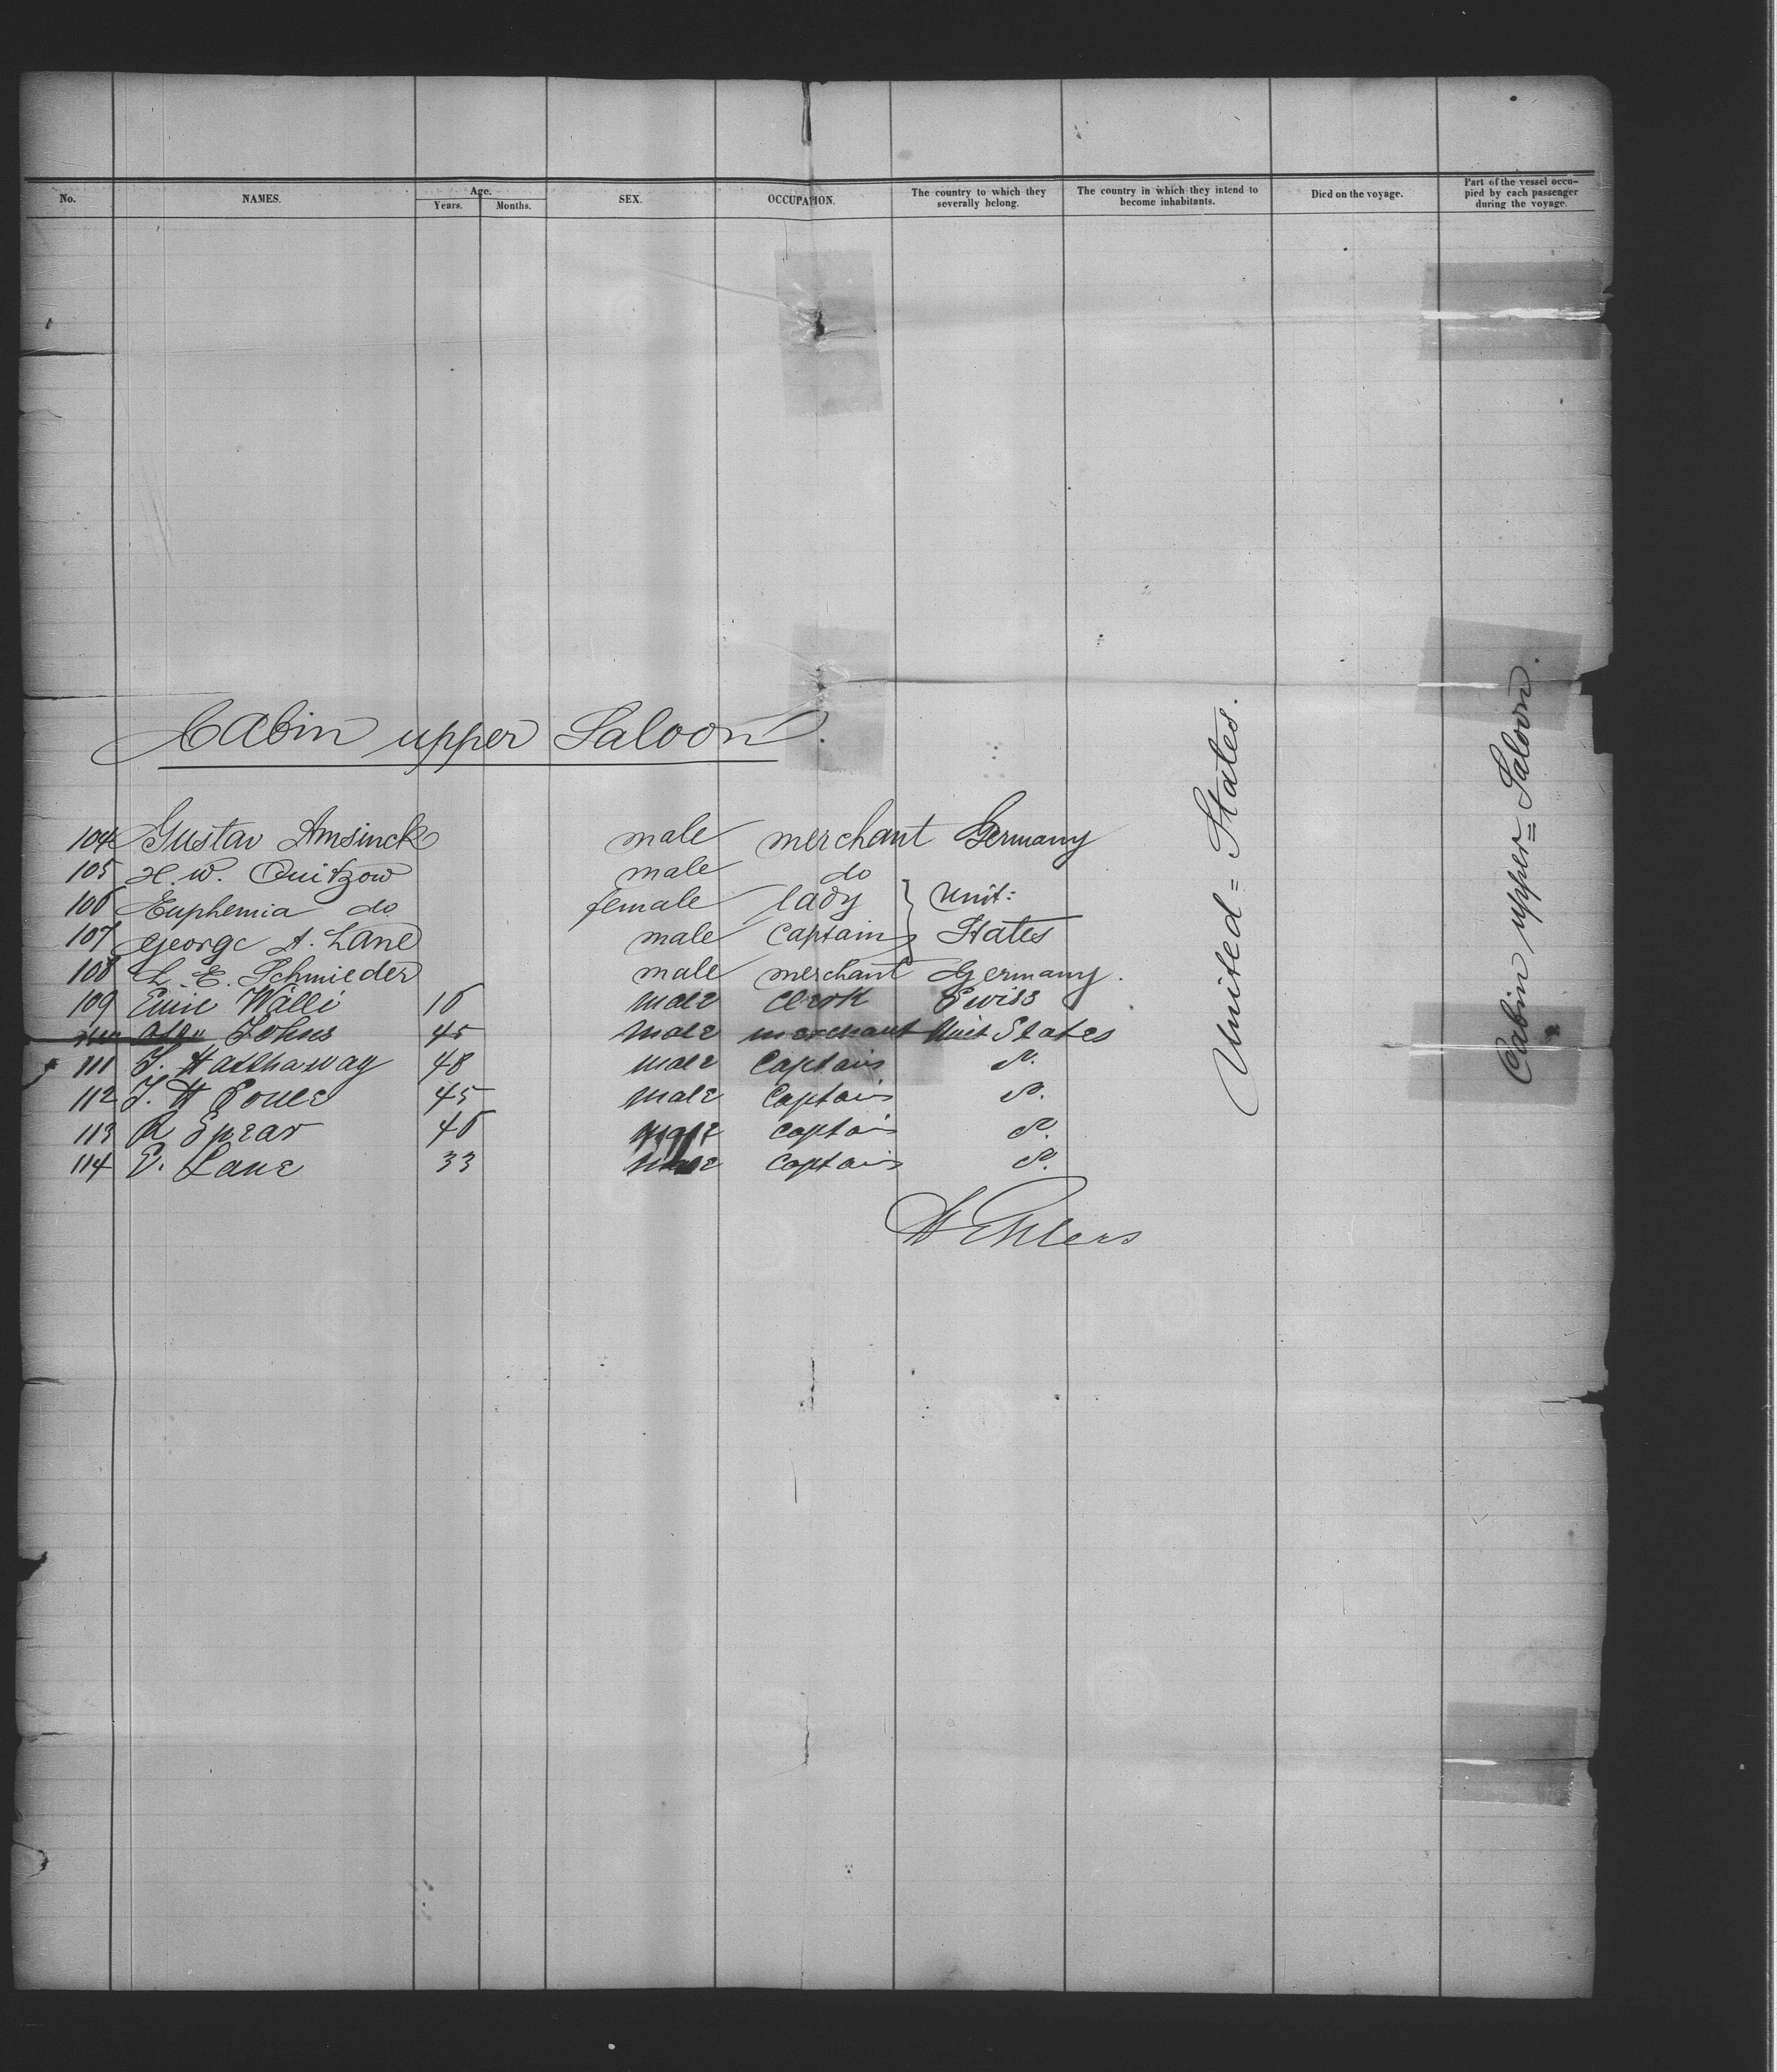 No. NAMES. Age. Years. Months. SEX. OCCUPATION. The country to which they severally belong. The country in which they intend to become inhabitants. Died on the voyage. Part of the vessel occupied by each passenger during the voyage.
Cabin upper Saloon.
104 Gustav Amsinck male merchant Germany
105 H. W. Quitzow male do
106 Euphemia do female lady } Unit:
107 George A. Lane male Captain } States
108 L. E. Schmieder male merchant Germany.
109 Emil Wälli 16 male Clerk Swiss
Johns 45 male merchant Unit States
111 Hathaway 48 male Captain
112 45 male Captain
113 Spear 46 male Captain
114 E. Lane 33 male Captain
United = States.
Cabin upper = Saloon.
Ehlers